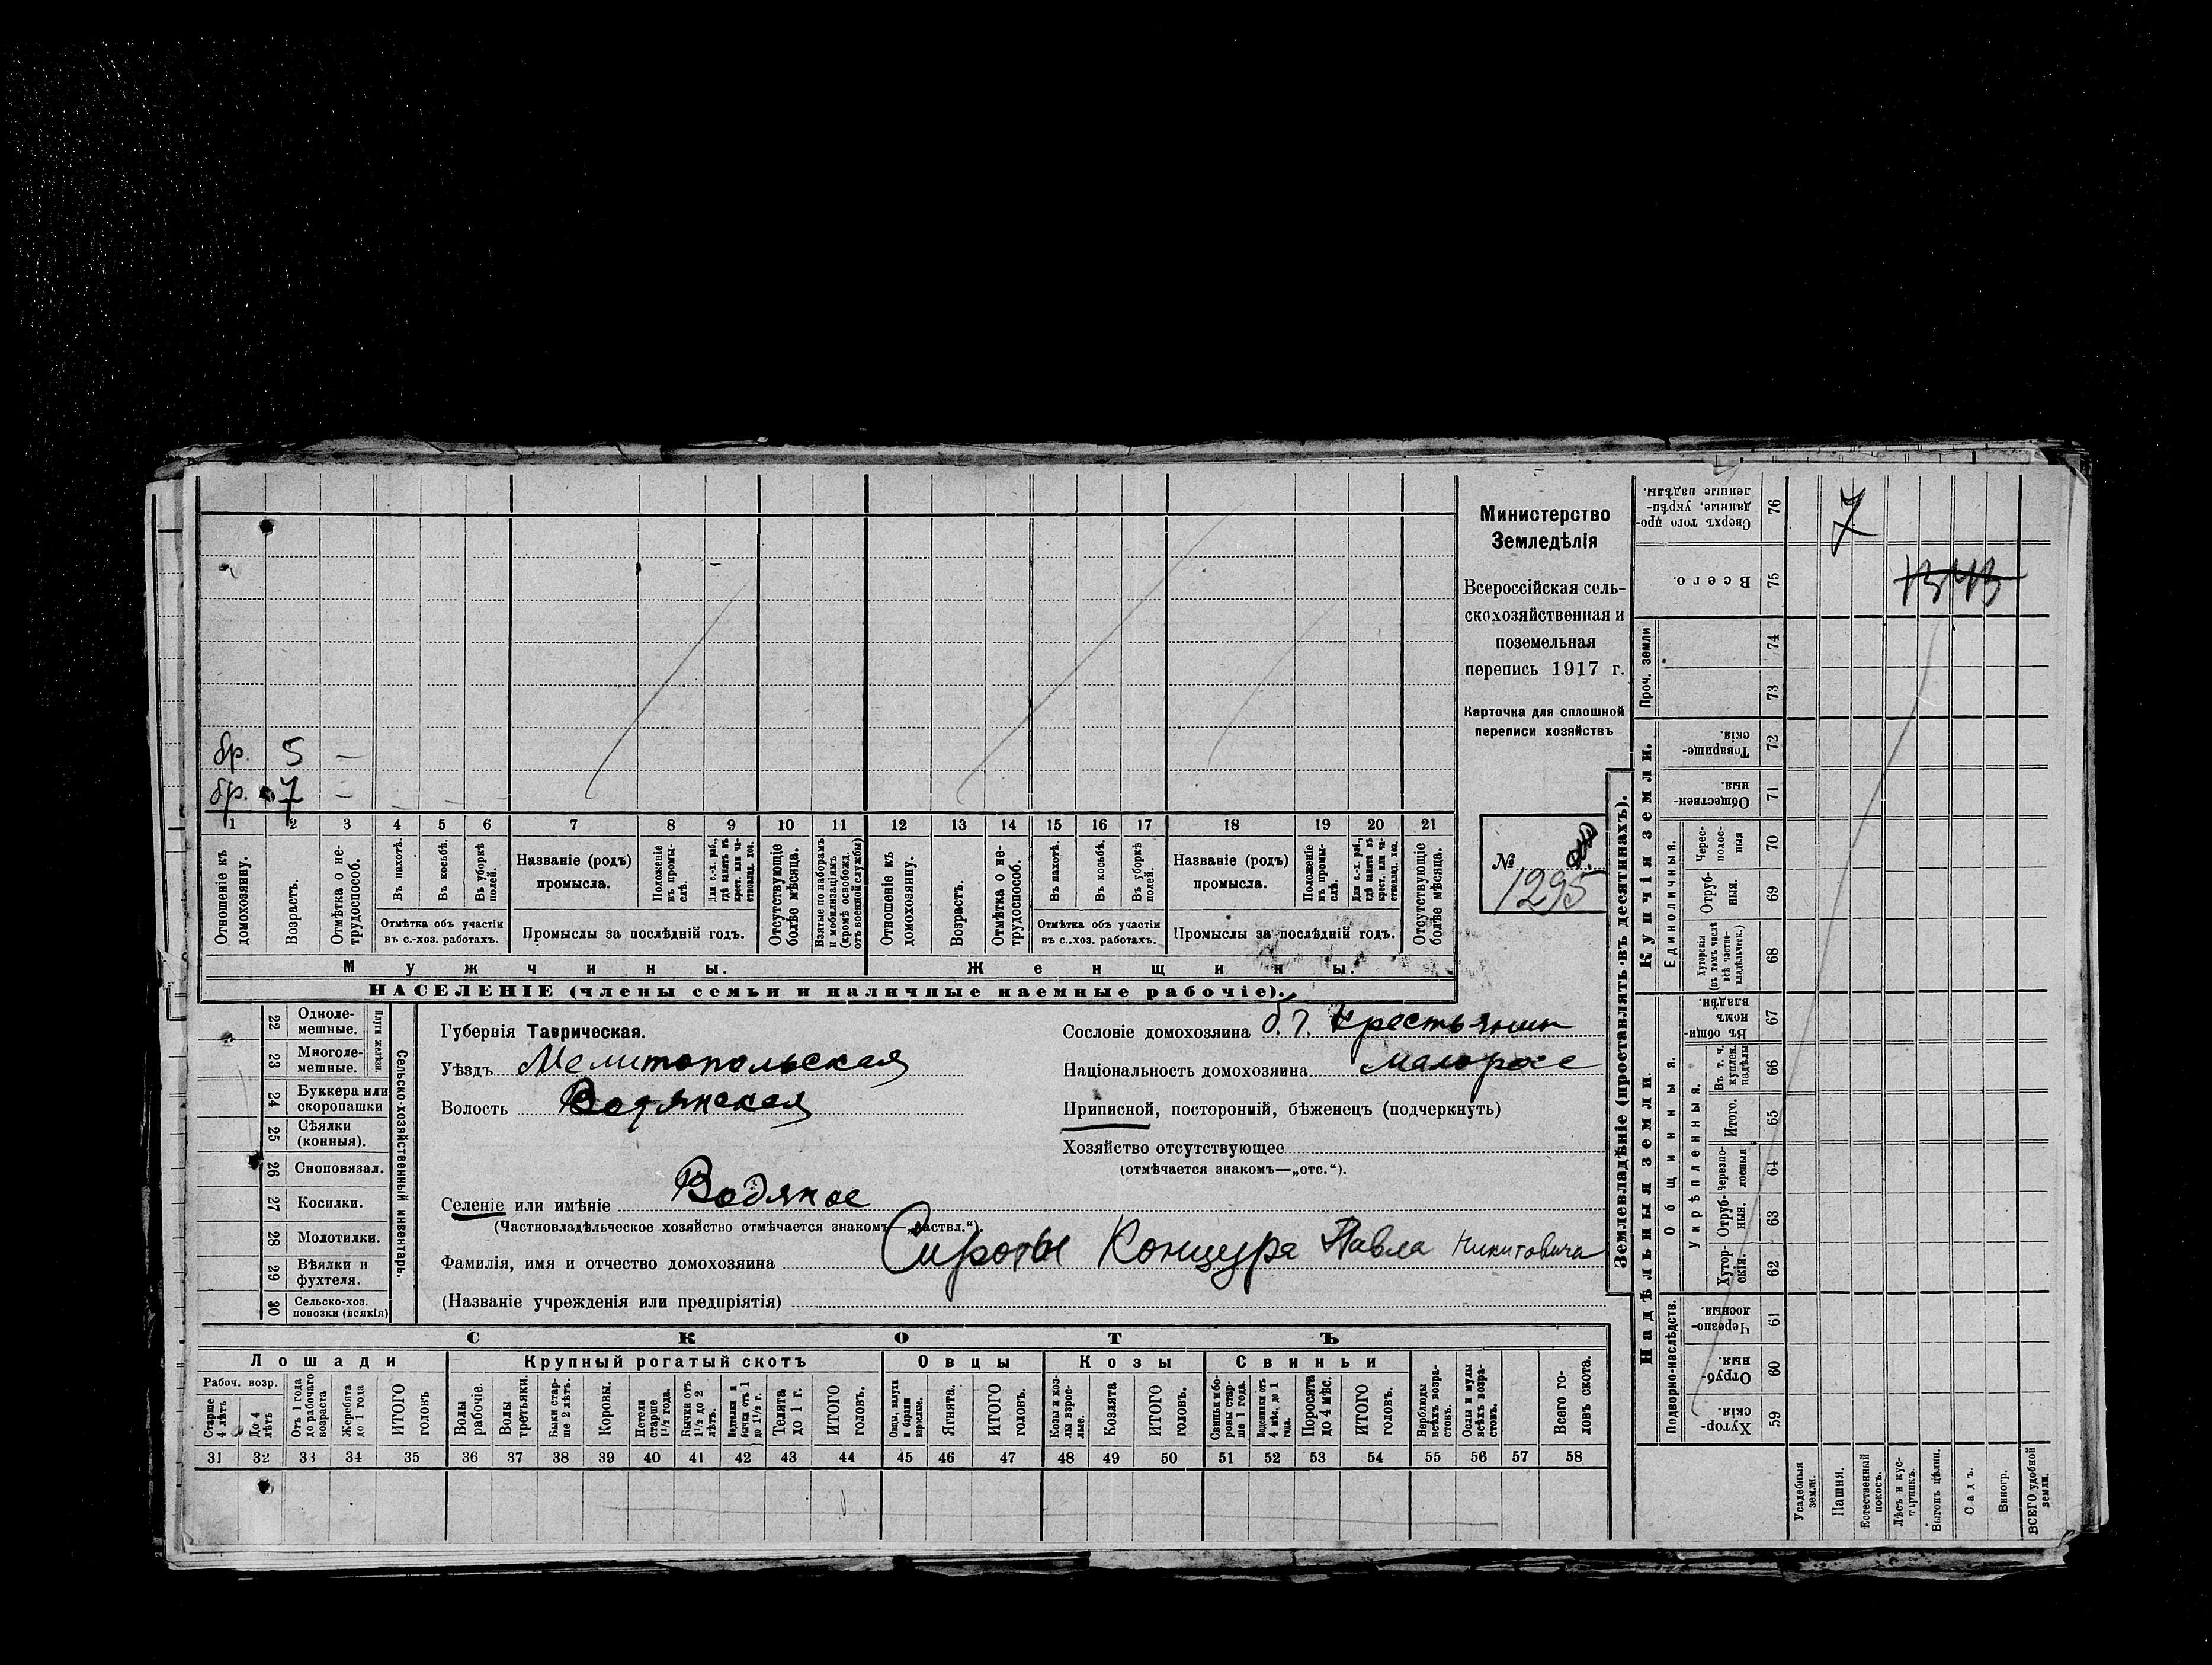 бр. 5 —
бр. 7 —
1 2 3 4 5 6 7 8 9 10 11 12 13 14 15 16 17 18 19 20 21
Отношеніе къ домохозяину.
Возрастъ.
Отмѣтка о не-трудоспособ.
Въ пахотѣ.
Въ косьбѣ.
Въ уборкѣ полей.
Отмѣтка объ участіи
въ с.-хоз. работахъ.
Названіе (родъ)
промысла.
Положеніе въ промы-слѣ.
Для с.-х. раб., гдѣ занятъ въ крест. или ча-стновлад. хоз.
Промыслы за послѣдній годъ.
Отсутствующіе болѣе мѣсяца.
Взятые по наборамъ и мобилизаціямъ (кромѣ освобожд. отъ военной службы)
Отношеніе къ домохозяину.
Возрастъ.
Отмѣтка о не-трудоспособ.
Въ пахотѣ.
Въ косьбѣ.
Въ уборкѣ полей.
Отмѣтка объ участіи
въ с.-хоз. работахъ.
Названіе (родъ)
промысла.
Положеніе въ промы-слѣ.
Для с.-х. раб., гдѣ занятъ въ крест. или ча-стновлад. хоз.
Промыслы за послѣдній годъ.
Отсутствующіе болѣе мѣсяца.
Мужчины.
Женщины.
НАСЕЛЕНІЕ (члены семьи и наличные наемные рабочіе).
Министерство
Земледѣлія
Всероссійская сель-
скохозяйственная и
поземельная
перепись 1917 г.
Карточка для сплошной
переписи хозяйствъ
№
1295
Сельско-хозяйственный инвентарь.
Плуги желѣзн.
22 Одноле-мешные.
23 Многоле-мешные.
24 Буккера или скоропашки
25 Сѣялки (конныя).
26 Сноповязал.
27 Косилки.
28 Молотилки.
29 Вѣялки и фухтеля.
30 Сельско-хоз. повозки (всякія)
Губернія Таврическая.
Уѣздъ Мелитопольская
Волость Водянская
Селеніе или имѣніе Водяное
(Частновладѣльческое хозяйство отмѣчается знакомъ—„частвл.“).
Фамилія, имя и отчество домохозяина Сироты Концура Павла Никитовича
(Названіе учрежденія или предпріятія)
Сословіе домохозяина б. г. крестьянин
Національность домохозяина малоросс
Приписной, посторонній, бѣженецъ (подчеркнуть)
Хозяйство отсутствующее
(отмѣчается знакомъ—„отс.“).
СКОТЪ
Лошади
Рабоч. возр.
Старше 4 лѣтъ
До 4 лѣтъ
Отъ 1 года до рабочаго возраста
Жеребята до 1 года
ИТОГО головъ
Крупный рогатый скотъ
Волы рабочіе.
Волы третьяки.
Быки стар-ше 2 лѣтъ.
Коровы.
Нетели старше 1½ года.
Бычки отъ 1½ до 2 лѣтъ.
Подтелки и бычки отъ 1 до 1½ г.
Телята до 1 г.
ИТОГО головъ.
Овцы
Овцы, валухи и бараны взрослые.
Ягнята.
ИТОГО головъ.
Козы
Козы и коз-лы взрос-лые.
Козлята
ИТОГО головъ.
Свиньи
Свиньи и бо-ровы стар-ше 1 года.
Подсвинки отъ 4 мѣс. до 1 года.
Поросята до 4 мѣс.
ИТОГО головъ.
Верблюды всѣхъ возра-стовъ.
Ослы и мулы всѣхъ возра-стовъ.
Всего го-ловъ скота.
31 32 33 34 35 36 37 38 39 40 41 42 43 44 45 46 47 48 49 50 51 52 53 54 55 56 57 58
Землевладѣніе (проставлять въ десятинахъ).
Надѣльныя земли.
Подворно-наслѣдств.
Хутор-скія. 59
Отруб-ныя. 60
Черезпо-лосныя. 61
Общинныя.
Укрѣпленныя.
Хутор-скія. 62
Отруб-ныя. 63
Черезпо-лосныя 64
Итого. 65
Въ т. ч. куплен. надѣлы 66
Въ общи-номъ владѣн. 67
Купчія земли.
Единоличныя.
Хуторскія (въ томъ числѣ всѣ частно-владѣльческ.) 68
Отруб-ныя. 69
Черес-полос-ныя 70
Обществен-ныя 71
Товарище-скія. 72
Проч. земли
73
74
Всего. 75
Сверхъ того про-данные, укрѣп-ленные надѣлы. 76
7
Усадебныя земли.
Пашня.
Естественный покосъ.
Лѣсъ и кус-тарникъ.
Выгонъ цѣлин.
Садъ.
Виногр.
ВСЕГО удобной земли.